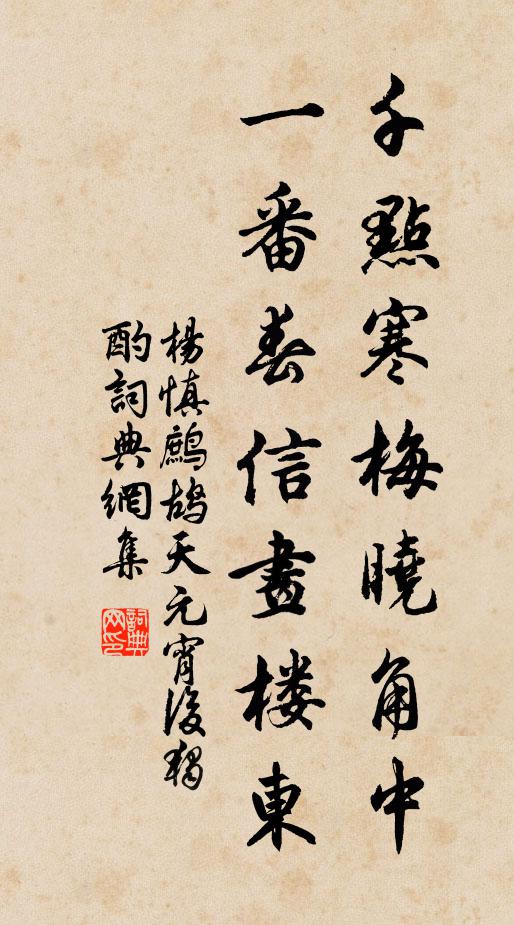 千點寒梅曉角中
一番春信畫楼東
楊慎鷓鴣天元宵後獨
酌詞典網集
詞典
网印